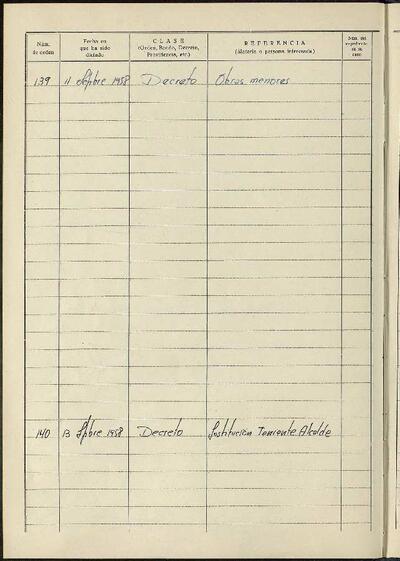 Núm. de orden | Fecha en que ha sido dictado | CLASE (Orden, Bando, Decreto, Providencia, etc.) | REFERENCIA (Materia o persona interesada) | Núm. del expediente en su caso
139 | 11 Sepbre 1958 | Decreto | Obras menores
140 | 13 Spbre 1958 | Decreto | Sustitución Teniente Alcalde